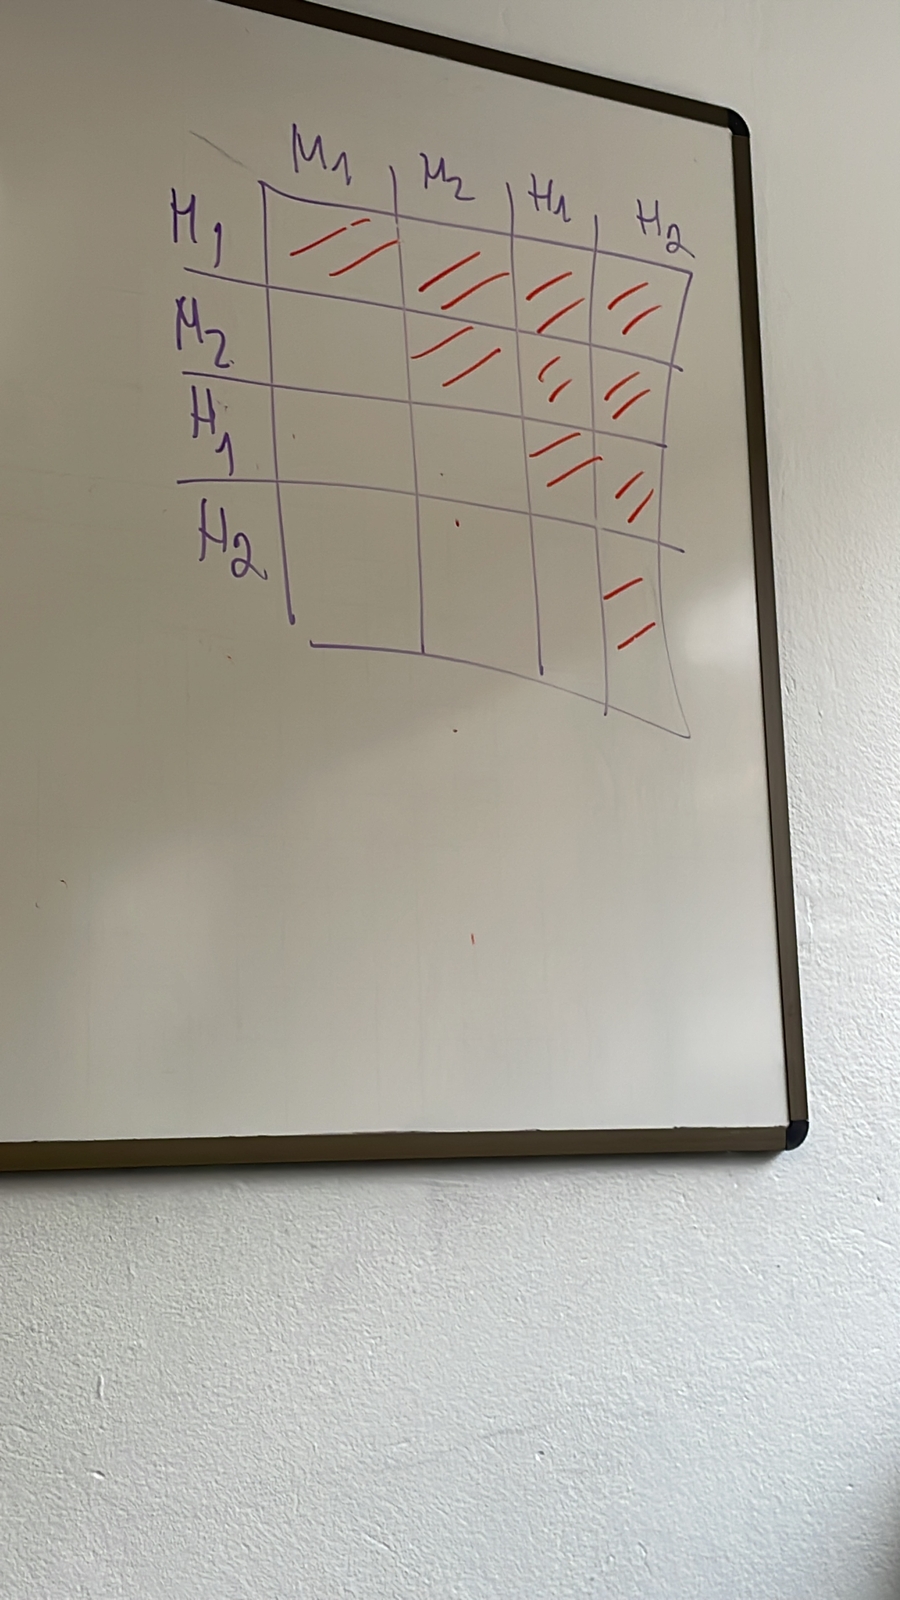 M1 M2 H1 H2
M1
M2
H1
H2